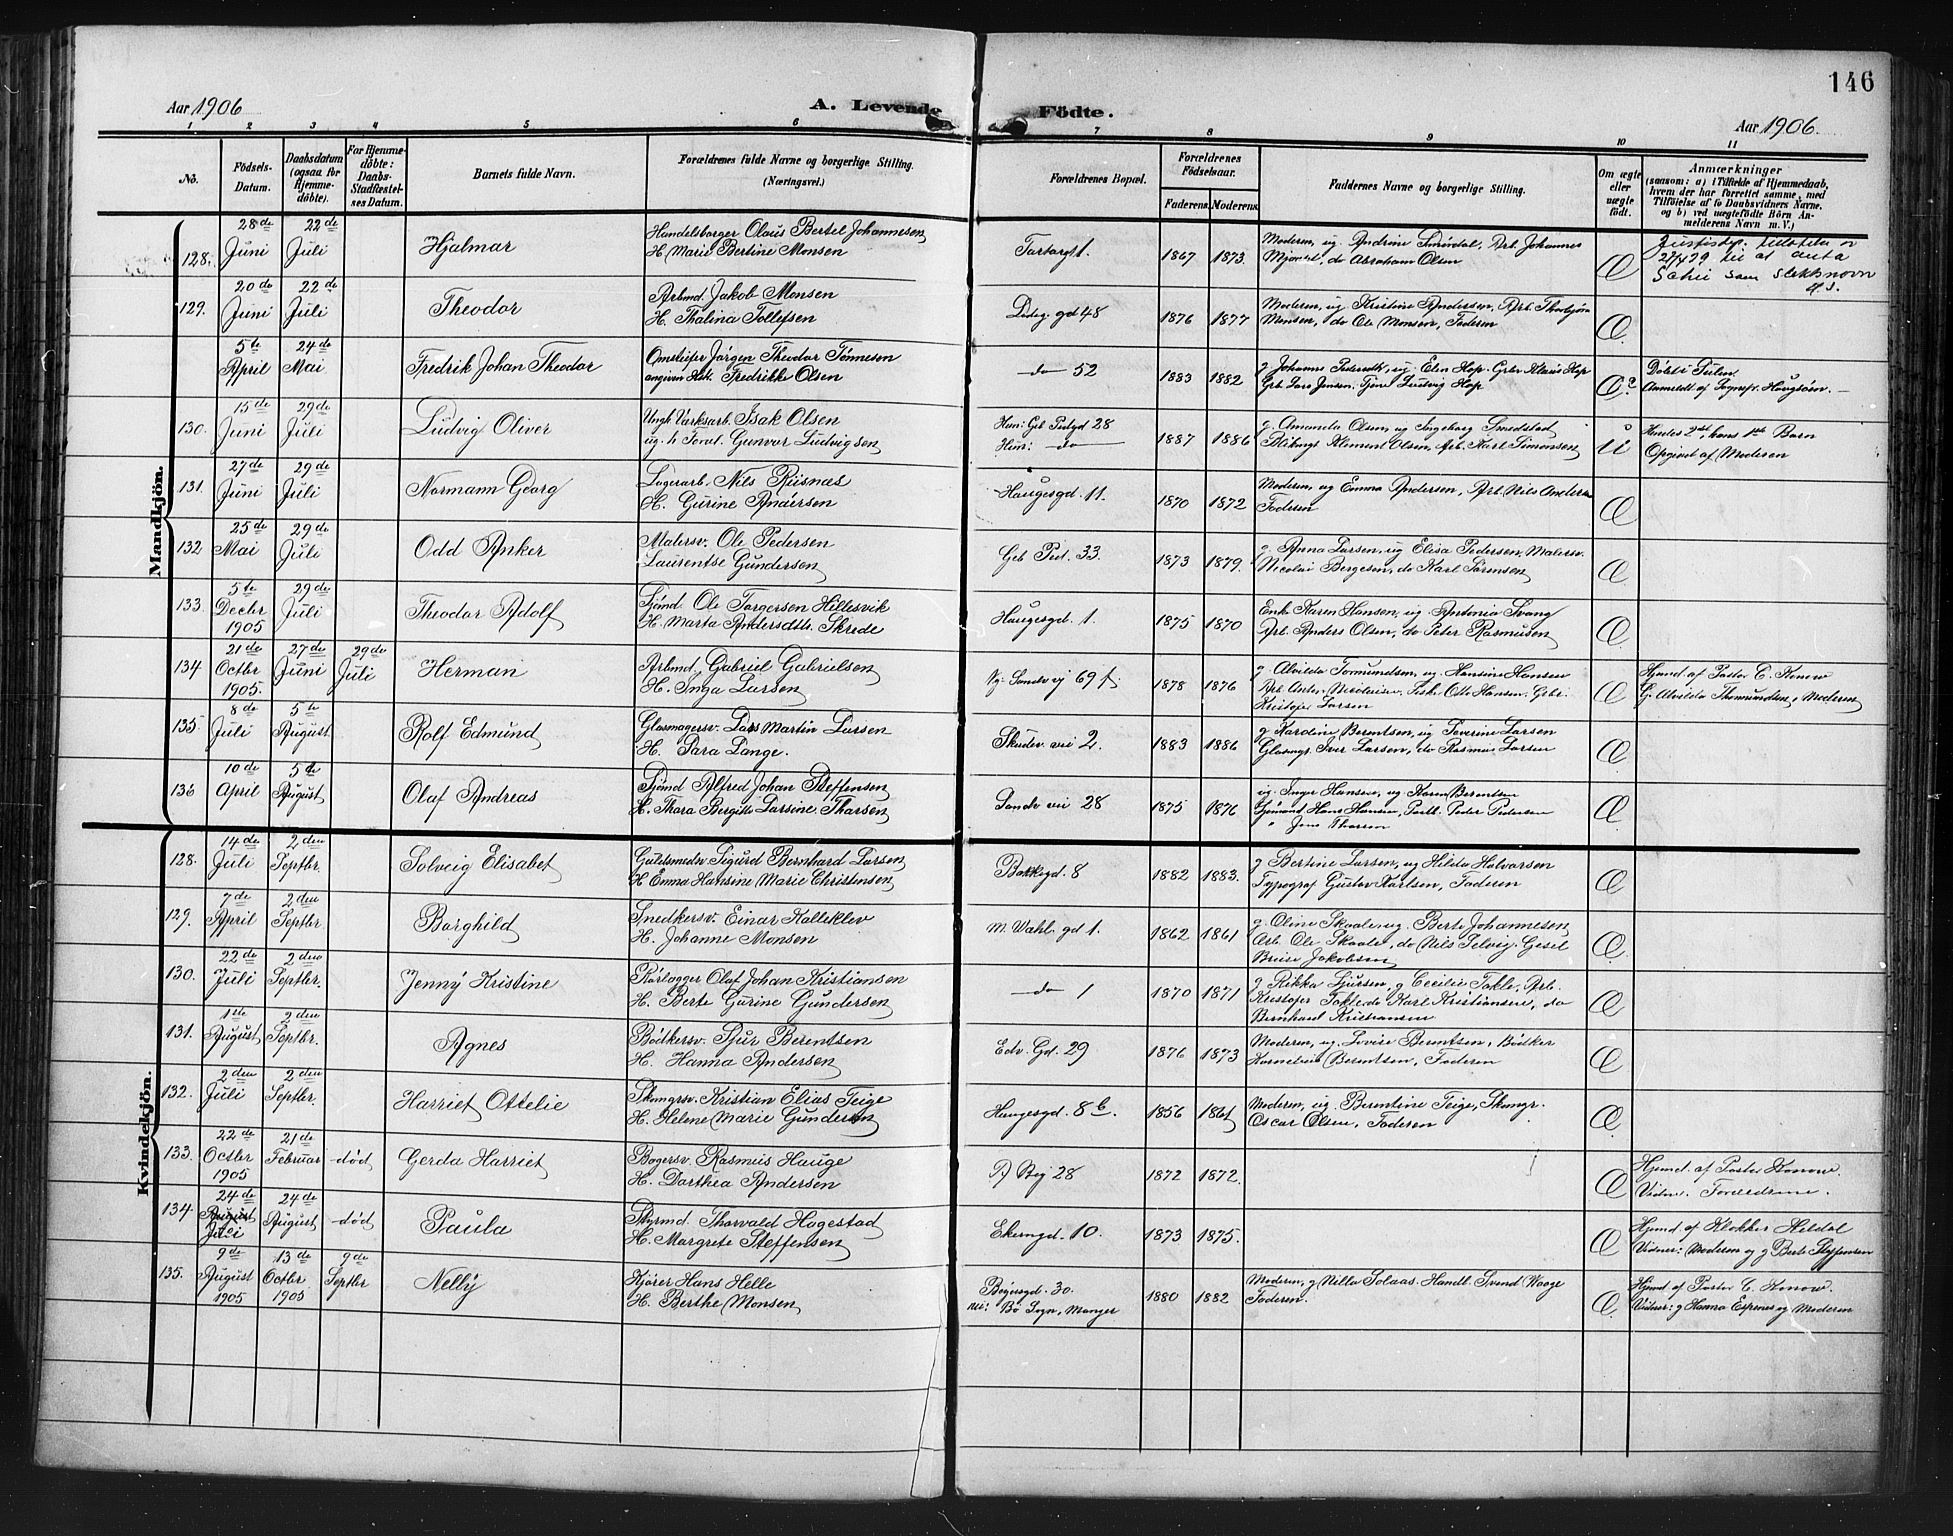 146
Aar 1906
A. Levende Födte.
Aar 1906.
1 2 3 4 5 6 7 8 9 10 11
No.
Födsels-Datum.
Daabsdatum (ogsaa for Hjemmedöbte).
For Hjemmedöbte: Daabs-Stadfæstelses Datum.
Barnets fulde Navn.
Forældrenes fulde Navne og borgerlige Stilling. (Næringsvei.)
Forældrenes Bopæl.
Forældrenes Födselsaar.
Faderens. Moderens.
Faddernes Navne og borgerlige Stilling.
Om ægte eller uægte födt.
Anmærkninger (saasom: a) i Tilfælde af Hjemmedaab, hvem der har forrettet samme, med Tilföielse af to Daabsvidners Navne, og b) ved uægtefödte Börn Anmelderens Navn m. V.)
Mandkjön.
128. 28de Juni 22de Juli Hjalmar
Handelsborger Olaus Bertel Johannesen
H. Marie Bertine Monsen
1867 1873.
Mjøvel, do Abraham Olsen
129. 20de Juni 22de Juli Theodor
Arbmd. Jakob Monsen
H. Thalina Tollefsen
gd 48 1876 1877
Moderen, ug. Kristine Andersen, Arb. Thorbjørn
Monsen, do Ole Monsen, Faderen
5te April 24de Mai Fredrik Johan Theodor
Jørgen Theodor Tønnesen
angiven Hst. Fredrikke Olsen
do 52 1883 1882
Anmeldt af Sognepr. Haugsöen. —
130. 15de Juni 29de Juli Ludvig Oliver
Ungk. Værksarb. Isak Olsen
ug. h Gunvor Ludvigsen
28
do 1887 1886
g. Amanda Olsen, ug Ingeborg Smedstad
Klement Olsen, Arb. Karl Simonsen
u
Hendes 2det, hans 1ste Barn
Opgivet af Moderen
131. 27de Juni 29de Juli Normann Georg
Lagerarb. Nils Risnæs
H. Gurine Andersen
Haugesgd. 11. 1870 1872
Moderen, ug Emma Andersen, Arb. Nils Andersen
Faderen
132 25de Mai 29de Juli Odd Anker
Malersv. Ole Pedersen
Laurentse Gundersen
33. 1873 1879.
g. Anna Larsen, ug Elisa Pedersen, Malersv.
Nicolai Bergesen, do Karl Sørensen
133. 5te Decbr 1905 29de Juli Theodor Adolf
Sjømd. Ole Torgersen Hillesvik
H. Marta Andersdtr. Skrede
Haugesgd. 1. 1875 1870
Enke Karen Hansen, ug. Antonia Svang
Arb. Anders Olsen, do Peter Rasmusen
134 21de Octbr 1905. 27de Juni 29de Juli Herman
Arbmd. Gabriel Gabrielsen
H. Inga Larsen
69 f. 1878 1876
g. Alvilde Tomundsen, ug Hansine Hansen
Otto Hansen
Kristofer Larsen
Hjmd. af Pastor C. Konow
g. Alvilde Thommundsen, Moderen
135. 8de Juli 5te August Rolf Edmund
Glasmagersv. Lars Martin Larsen
H. Sara Lange.
Skudev. vei 2. 1883 1886
g Kardine Berentsen, ug Severine Larsen
Glasmgr. Iver Larsen, do Rasmus Larsen
136 10de April 5te August Olaf Andreas
Sjømd Alfred Johan Steffensen
H. Thora Bergitte Larsine Tharsen
Sandv. vei 28 1875 1876
ug. Inger Hansen, ug. Karen Berentsen
Sjømand Hans Hansen, Peder Pedersen
" Jens Tharsen
Kvindekjön.
128. 14de Juli 2den Septbr. Solveig Elisabet
Guldsmedsv. Sigurd Bernhard Larsen
H Emma Hansine Marie Christensen
Bakkegd. 8 1882 1883.
g Bertine Larsen, ug Hilda Halvorsen
Typograf Gustav Karlsen, Faderen
129. 7de April 2den Septbr. Borghild
Snedkersv. Einar Kalleklev
H. Johanne Monsen
m. Wahl. gd 1. 1862 1861
g. Oline Skaale, ug. Berte Johannesen
Arb. Ole Skaale, do Nils Selvig, Gesel
Jakobsen
130. 22de Juli 2den Septbr. Jenny Kristine
Rørlægger Olaf Johan Kristiansen
H. Berte Gurine Gundersen
do 1 1870 1871
g Rikka Sjursen, g Cecilie Takle, Arb.
Kristofer Takle, do Karl Kristiansen, do
Bernhard Kristiansen
131. 1ste August 2den Septbr. Agnes
Bödkersv. Sjur Berentsen
H. Hanna Andersen
Edv. Gd. 29 1876 1873
Moderen, ug. Lovise Berentsen, Bödker
Kornelius Berentsen, Faderen
132. 2den Juli 2den Septbr. Harriet Ottelie
Skomgrsv. Kristian Elias Teige
H. Helene Marie Gundersen
Haugesgd. 8 b. 1856 1861
Moderen, ug. Berentine Teige, Skomgr.
Oscar Olsen, Faderen
133. 22de Octbr 1905 21de Februar død Gerda Harriet
Bagersv. Rasmus Hauge
H. Dorthea Andersen
28 1872 1872.
Hjemd. af Pastor Konow.
Vidner. Forældrene.
134 24de August Juli 24de August død Paula
Styrmd. Thorvald Hogestad
H. Margrete Steffensen
Ekerngd. 10. 1873 1875.
Hjemd af Klokker Hildal
Vidner: Moderen og g Berte Steffensen
135. 9de August 1905 13de Octbr 1905 9de Septbr Nelly
Kjører Hans Helle
H. Berthe Monsen
Bøgesgd. 30.
Bø Sogn, Manger 1880 1882
Moderen, g Nilla Solaas. Handl. Svend Waage
Faderen.
Hjemd af Pastor C. Konow.
Vidner: g Hanna Espenes og Moderen